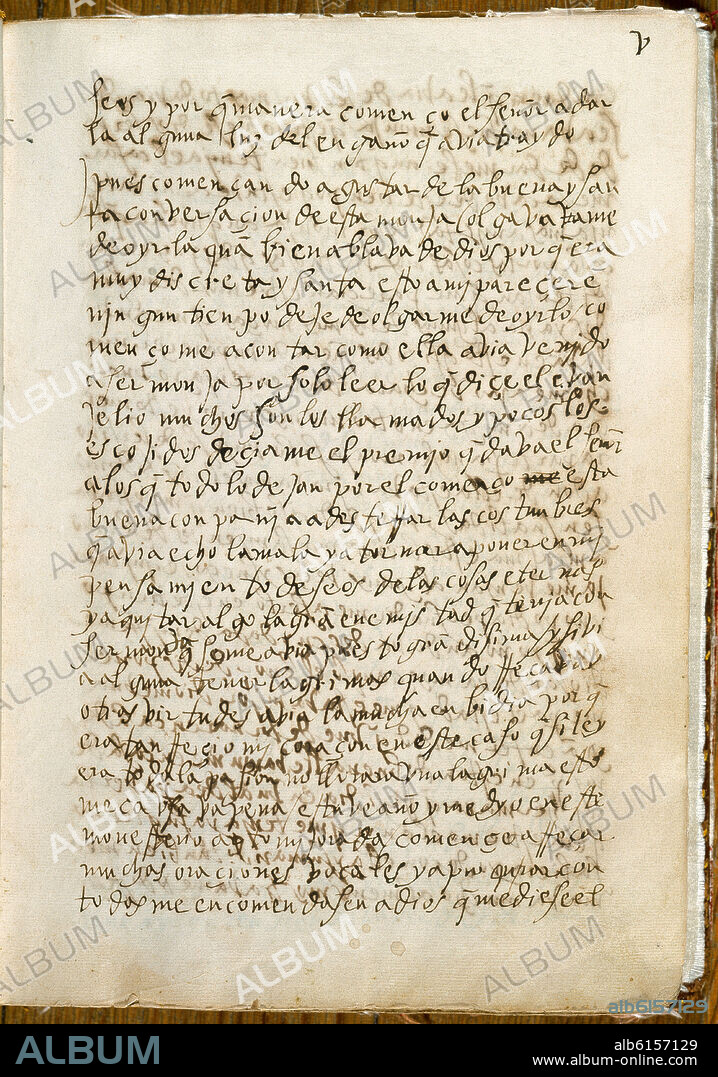 V
seos y por q̄ manera començo el señor a dar
la alguna luz del engaño q̄ avia traydo
pues començando a gustar de la buena y san
ta conversaçion de esta monja olgavatame
de oyrla quā bien ablava de dios porq̄ era
muy discreta y santa esto a mi pareçer e
nin gun tienpo deje de olgarme de oyrlo co
menço me a contar como ella avia venido
a ser monja por solo leer lo q̄ diçe el evan
jelio muchos son los llamados y pocos los
escojidos deçiame el premio q̄ dava el señor
a los q̄ todo lo dejan por el començo me esta
buena conpañia a desterrar las costunbres
q̄ avia echo la mala y a tornar a poner en mi
pensamiento deseos de las cosas eternas
y a quitar algo la grā enemistad q̄ tenia con
ser monja q̄ se me avia puesto grādisima y si vi
a alguna tener lagrimas quando rreçava v
otras virtudes avia la mucha enbidia porq̄
era tan rreçio mi coraçon en este caso q̄ si ley
era toda la pasion no llorara una lagrima esto
me causava pena estuve año y medio en este
monesterio arto mijorada comence a rreçar
muchas oraçiones vocales y a procurar con
todas me encomendasen a dios q̄ me diese el
ALBUM
alb6157129
ALBUM
alb6157129
www.album-online.com